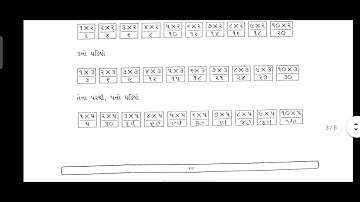 ૧×૨ ૨×૨ ૩×૨ ૪×૨ ૫×૨ ૬×૨ ૭×૨ ૮×૨ ૯×૨ ૧૦×૨
૨ ૪ ૬ ૮ ૧૦ ૧૨ ૧૪ ૧૬ ૧૮ ૨૦
૩નો ઘડિયો
૧×૩ ૨×૩ ૩×૩ ૪×૩ ૫×૩ ૬×૩ ૭×૩ ૮×૩ ૯×૩ ૧૦×૩
૩ ૬ ૯ ૧૨ ૧૫ ૧૮ ૨૧ ૨૪ ૨૭ ૩૦
તેના પરથી, ૫નો ઘડિયો
૧×૫ ૨×૫ ૩×૫ ૪×૫ ૫×૫ ૬×૫ ૭×૫ ૮×૫ ૯×૫ ૧૦×૫
૫ ૧૦ ૧૫ ૨૦ ૨૫ ૩૦ ૩૫ ૪૦ ૪૫ ૫૦
3 / 5